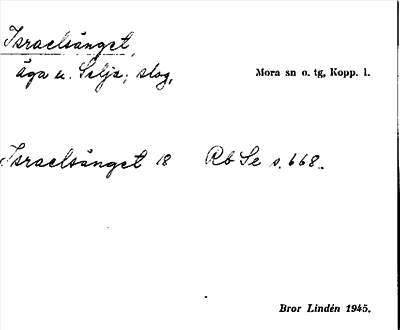 Israelsänget,
äga u. Selja; slog,
Mora sn o. tg, Kopp. l.
Israelsänget 18 Rb Se s. 668.
Bror Lindén 1945.